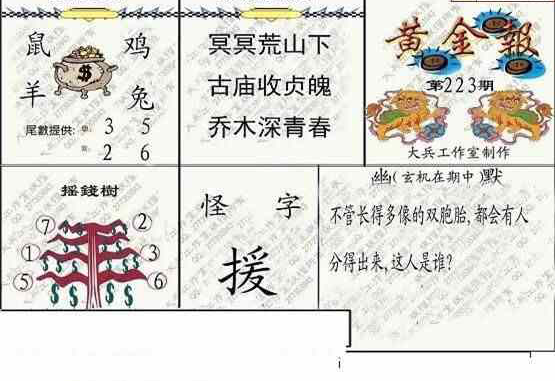 鼠 鸡
$
羊 兔
尾數提供: 单: 3 5
2 6
冥冥荒山下
古庙收贞魄
乔木深青春
黄金報
第223期
大兵工作室制作
摇錢樹
7 2
1 3
5 6
怪 字
援
幽(玄机在期中 默
不管长得多像的双胞胎,都会有人
分得出来,这人是谁?